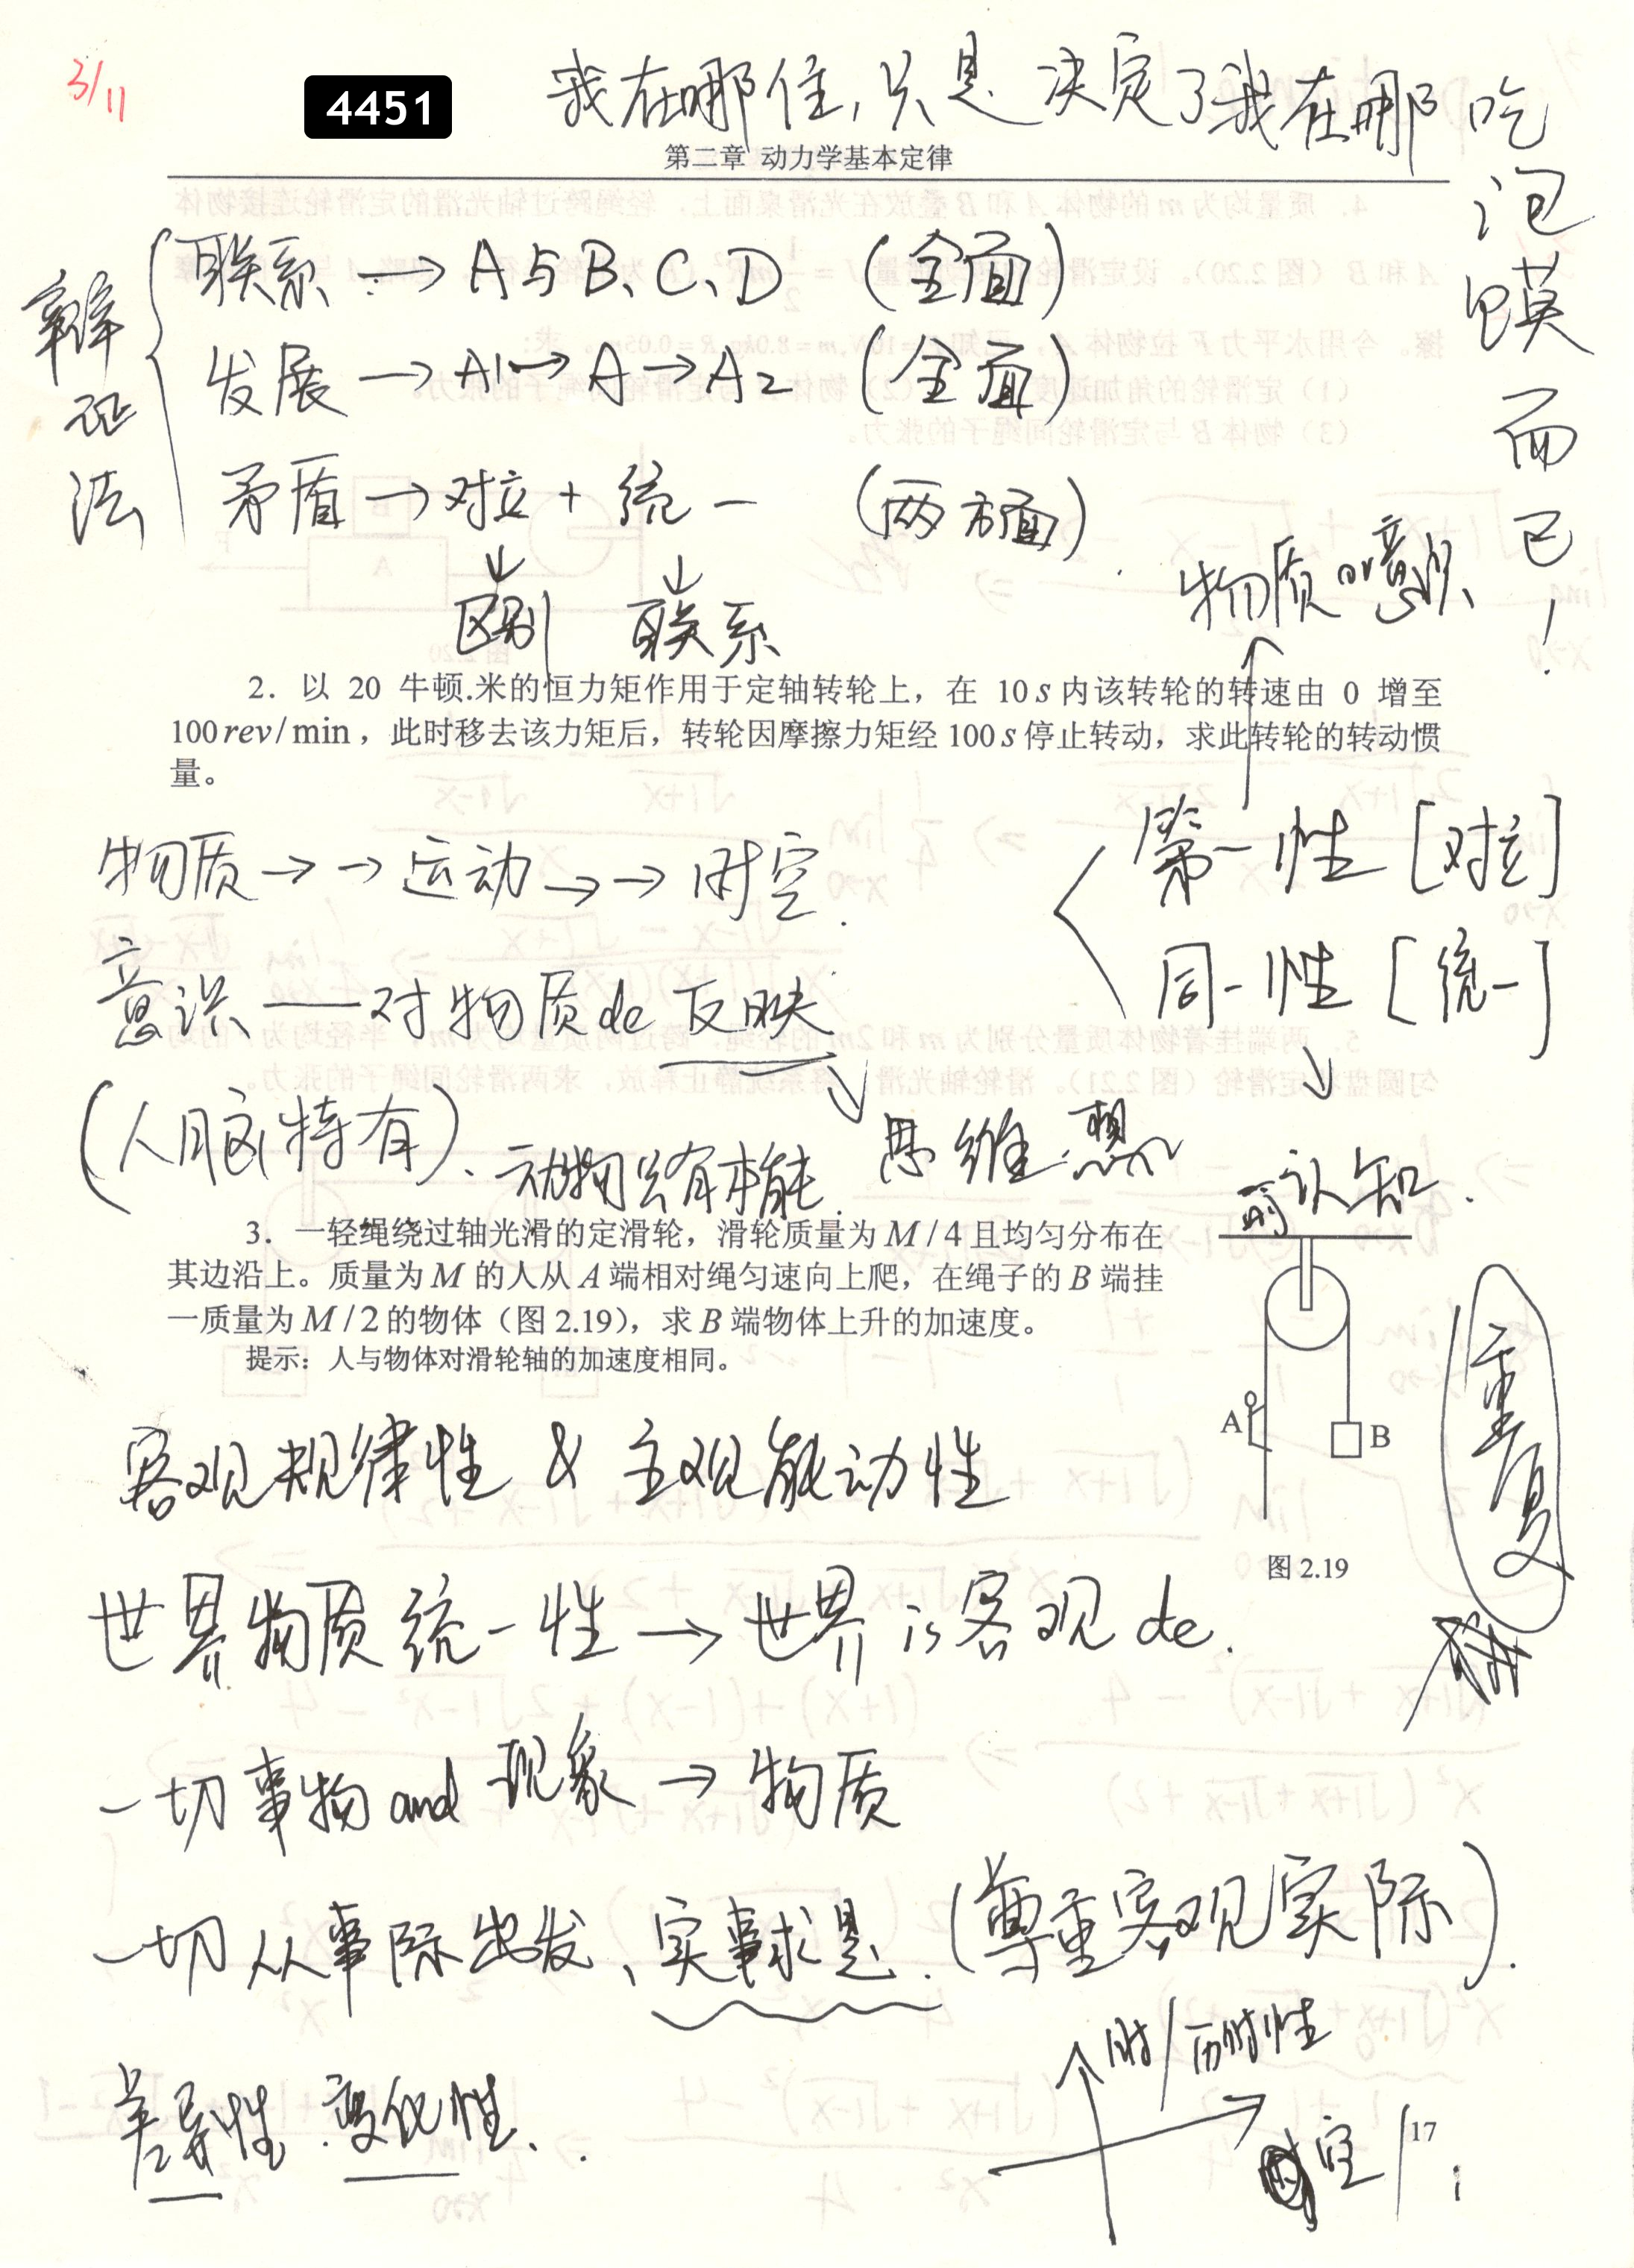 3/11
4451
我在哪住,只是决定了我在哪吃
泡馍而已!
第二章 动力学基本定律
辩证法
联系 → A与B、C、D (全面)
发展 → A1→A→A2 (全面)
矛盾 → 对立 + 统一 (两方面)
区别 联系
物质 or 意识
2. 以 20 牛顿.米的恒力矩作用于定轴转轮上,在 10 s 内该转轮的转速由 0 增至
100 rev/min,此时移去该力矩后,转轮因摩擦力矩经 100 s 停止转动,求此转轮的转动惯
量。
第一性 [对立]
物质→→运动→→时空.
同一性 [统一]
意识——对物质de反映
(人脑特有). 动物只有本能. 思维.想
可认知.
3. 一轻绳绕过轴光滑的定滑轮,滑轮质量为 M/4 且均匀分布在
其边沿上。质量为 M 的人从 A 端相对绳匀速向上爬,在绳子的 B 端挂
一质量为 M/2 的物体(图 2.19),求 B 端物体上升的加速度。
提示:人与物体对滑轮轴的加速度相同。
A
B
图 2.19
重复
客观规律性 & 主观能动性
世界物质统一性 → 世界is客观de.
一切事物and现象 → 物质
一切从事际出发、实事求是.(尊重客观实际).
时/历时性
差异性.变化性.
空/
17